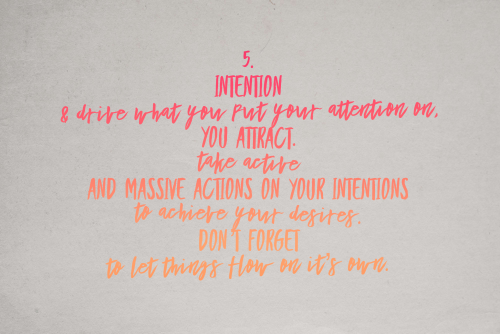 5.
INTENTION
& drive what you put your attention on,
YOU ATTRACT.
take active
AND MASSIVE ACTIONS ON YOUR INTENTIONS
to achieve your desires.
DON'T FORGET
to let things flow on it's own.